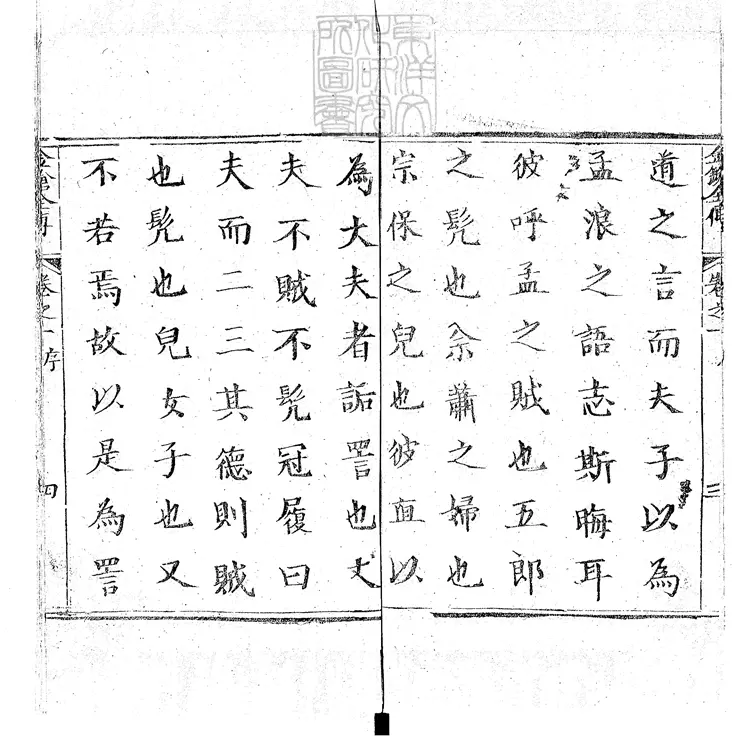 道之言而夫子以為
孟浪之語志斯晦耳
彼呼孟之賊也五郎
之髡也佘蕭之婦也
宗保之兒也彼直以
為大夫者詬詈也丈
夫不賊不髡冠履曰
夫而二三其德則賊
也髡也兒女子也又
不若焉故以是為詈
卷之一
三
卷之一 序
四
東洋文
化研究
所圖書